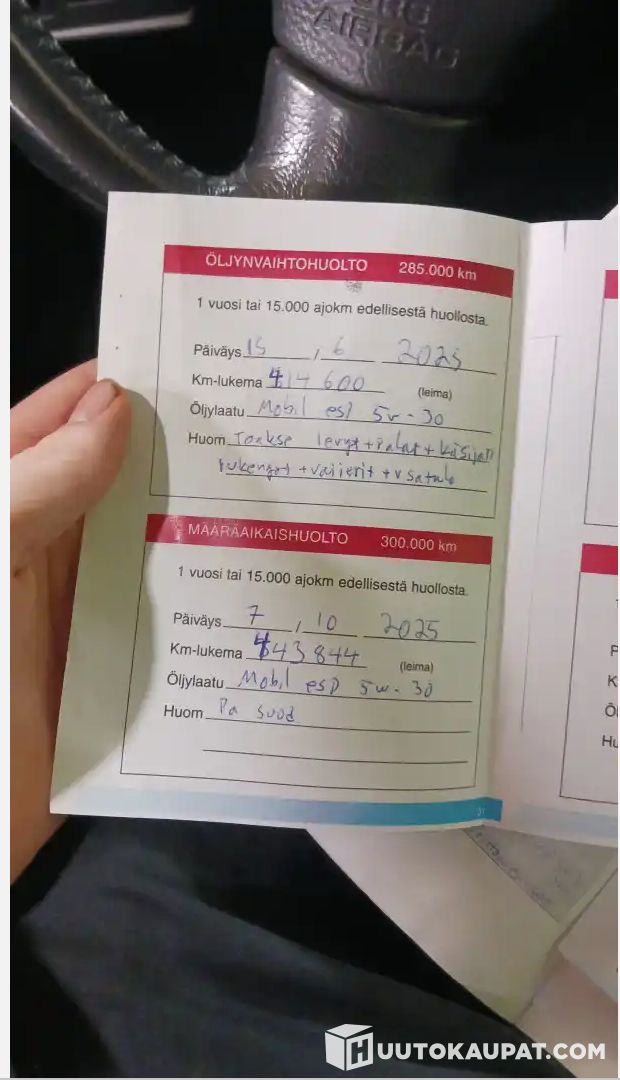 SRS
AIRBAG
ÖLJYNVAIHTOHUOLTO 285.000 km
1 vuosi tai 15.000 ajokm edellisestä huollosta.
Päiväys 15 , 6 2025
Km-lukema 414 600 (leima)
Öljylaatu Mobil esp 5w-30
Huom levyt + palat +
+ vaijerit +
MÄÄRÄAIKAISHUOLTO 300.000 km
1 vuosi tai 15.000 ajokm edellisestä huollosta.
Päiväys 7 , 10 2025
Km-lukema 443 844 (leima)
Öljylaatu Mobil esp 5w-30
Huom Pa suod
31
HUUTOKAUPAT.COM